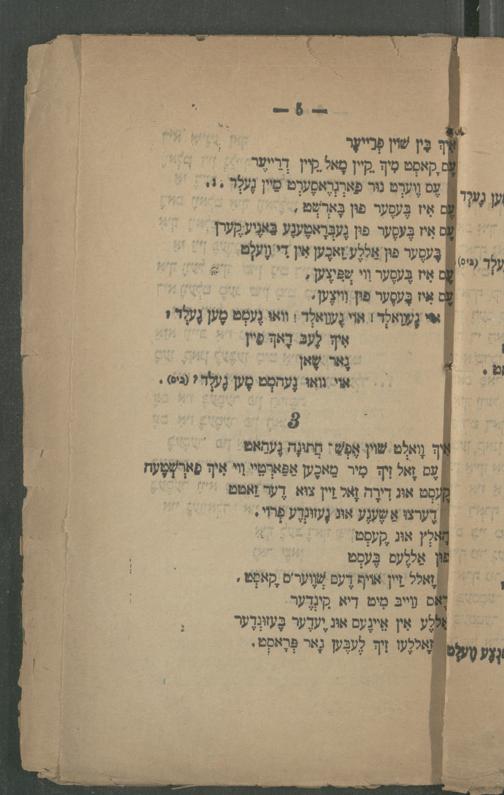 — 5 —
איך בּין שוין פרייער
עס קאסט מיך קיין מאל קיין דרייער
עס ווערט נור פארגרעסערט מיין געלד . . .
עס איז בעסער פון בארשט,
עס איז בעסער פון געבראטענע באניעקערן
בעסער פון אללע זאכען אין די וועלט
עס איז בעסער ווי שפיצען,
עס איז בעסער פון וויצען.
אוי געוואלד! אוי געוואלד! וואו נעמט מען געלד?
איך לעב דאך פיין
גאר שאן
אוי וואו נעהמט מען געלד? (ביס).
3
איך וואלט שוין אפשר חתונה געהאט
עס זאל זיך מיר מאכען אפארטיי ווי איך פארשטעה
קעסט אונ דירה זאל זיין צוא דער זאטט
דערצו אשענע אונ געזונדע פרוי.
האלץ אונ קעסט
פון אללעם בעסט
זאלל זיין אויף דעם שווער׳ס קאסט,
דאס ווייב מיט דיא קינדער
אללע אין איינעם אונ יעדער בעזונדער
זאללען זיך לעבען גאר פראסט.